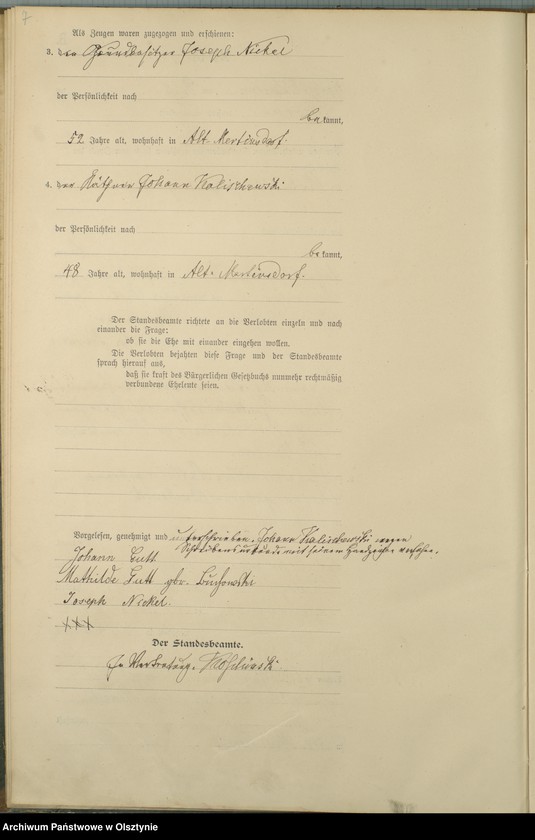 7
Als Zeugen waren zugezogen und erschienen:
3. der Grundbesitzer Joseph Nickel
der Persönlichkeit nach
be kannt,
52 Jahre alt, wohnhaft in Alt Mertinsdorf.
4. der Käthner Johann Kalischewski
der Persönlichkeit nach
be kannt,
48 Jahre alt, wohnhaft in Alt-Mertinsdorf.
Der Standesbeamte richtete an die Verlobten einzeln und nach
einander die Frage:
ob sie die Ehe mit einander eingehen wollen.
Die Verlobten bejahten diese Frage und der Standesbeamte
sprach hierauf aus,
daß sie kraft des Bürgerlichen Gesetzbuchs nunmehr rechtmäßig
verbundene Eheleute seien.
Vorgelesen, genehmigt und unterschrieben. Johann Kalischewski wegen
Schreibensunkunde mit seinem Handzeichen versehen.
Johann Gutt
Mathilde Gutt gbr. Buchowski
Joseph Nickel.
+++
Der Standesbeamte.
In Vertretung.
Archiwum Państwowe w Olsztynie